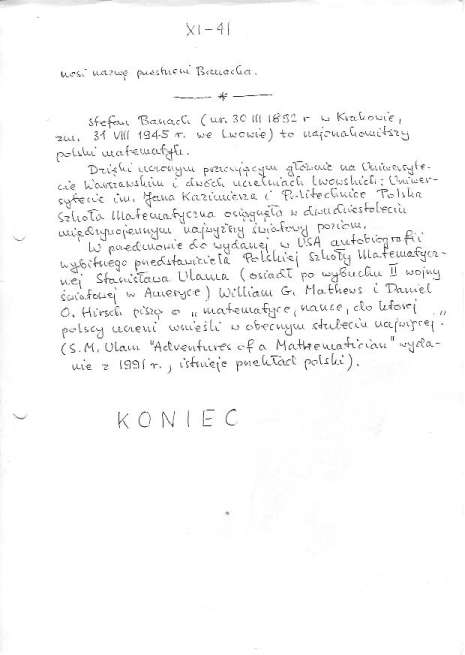 XI-41
nosi nazwę przestrzeni Banacha.
*
Stefan Banach (ur. 30 III 1892 w Krakowie,
zm. 31 VIII 1945 r. we Lwowie) to najznakomitszy
polski matematyk.
Dzięki uczonym pracującym głównie na Uniwersyte-
cie Warszawskim i dwóch uczelniach lwowskich: Uniwer-
sytecie im. Jana Kazimierza i Politechnice Polska
Szkoła Matematyczna osiągnęła w dwudziestoleciu
międzywojennym najwyższy światowy poziom.
W przedmowie do wydanej w USA autobiografii
wybitnego przedstawiciela Polskiej Szkoły Matematycz-
nej Stanisława Ulama (osiadł po wybuchu II wojny
światowej w Ameryce) William G. Mathews i Daniel
O. Hirsch piszą o „matematyce, nauce, do której
polscy uczeni wnieśli w obecnym stuleciu najwięcej."
(S.M. Ulam "Adventures of a Mathematician" wyda-
nie z 1991 r., istnieje przekład polski).
KONIEC